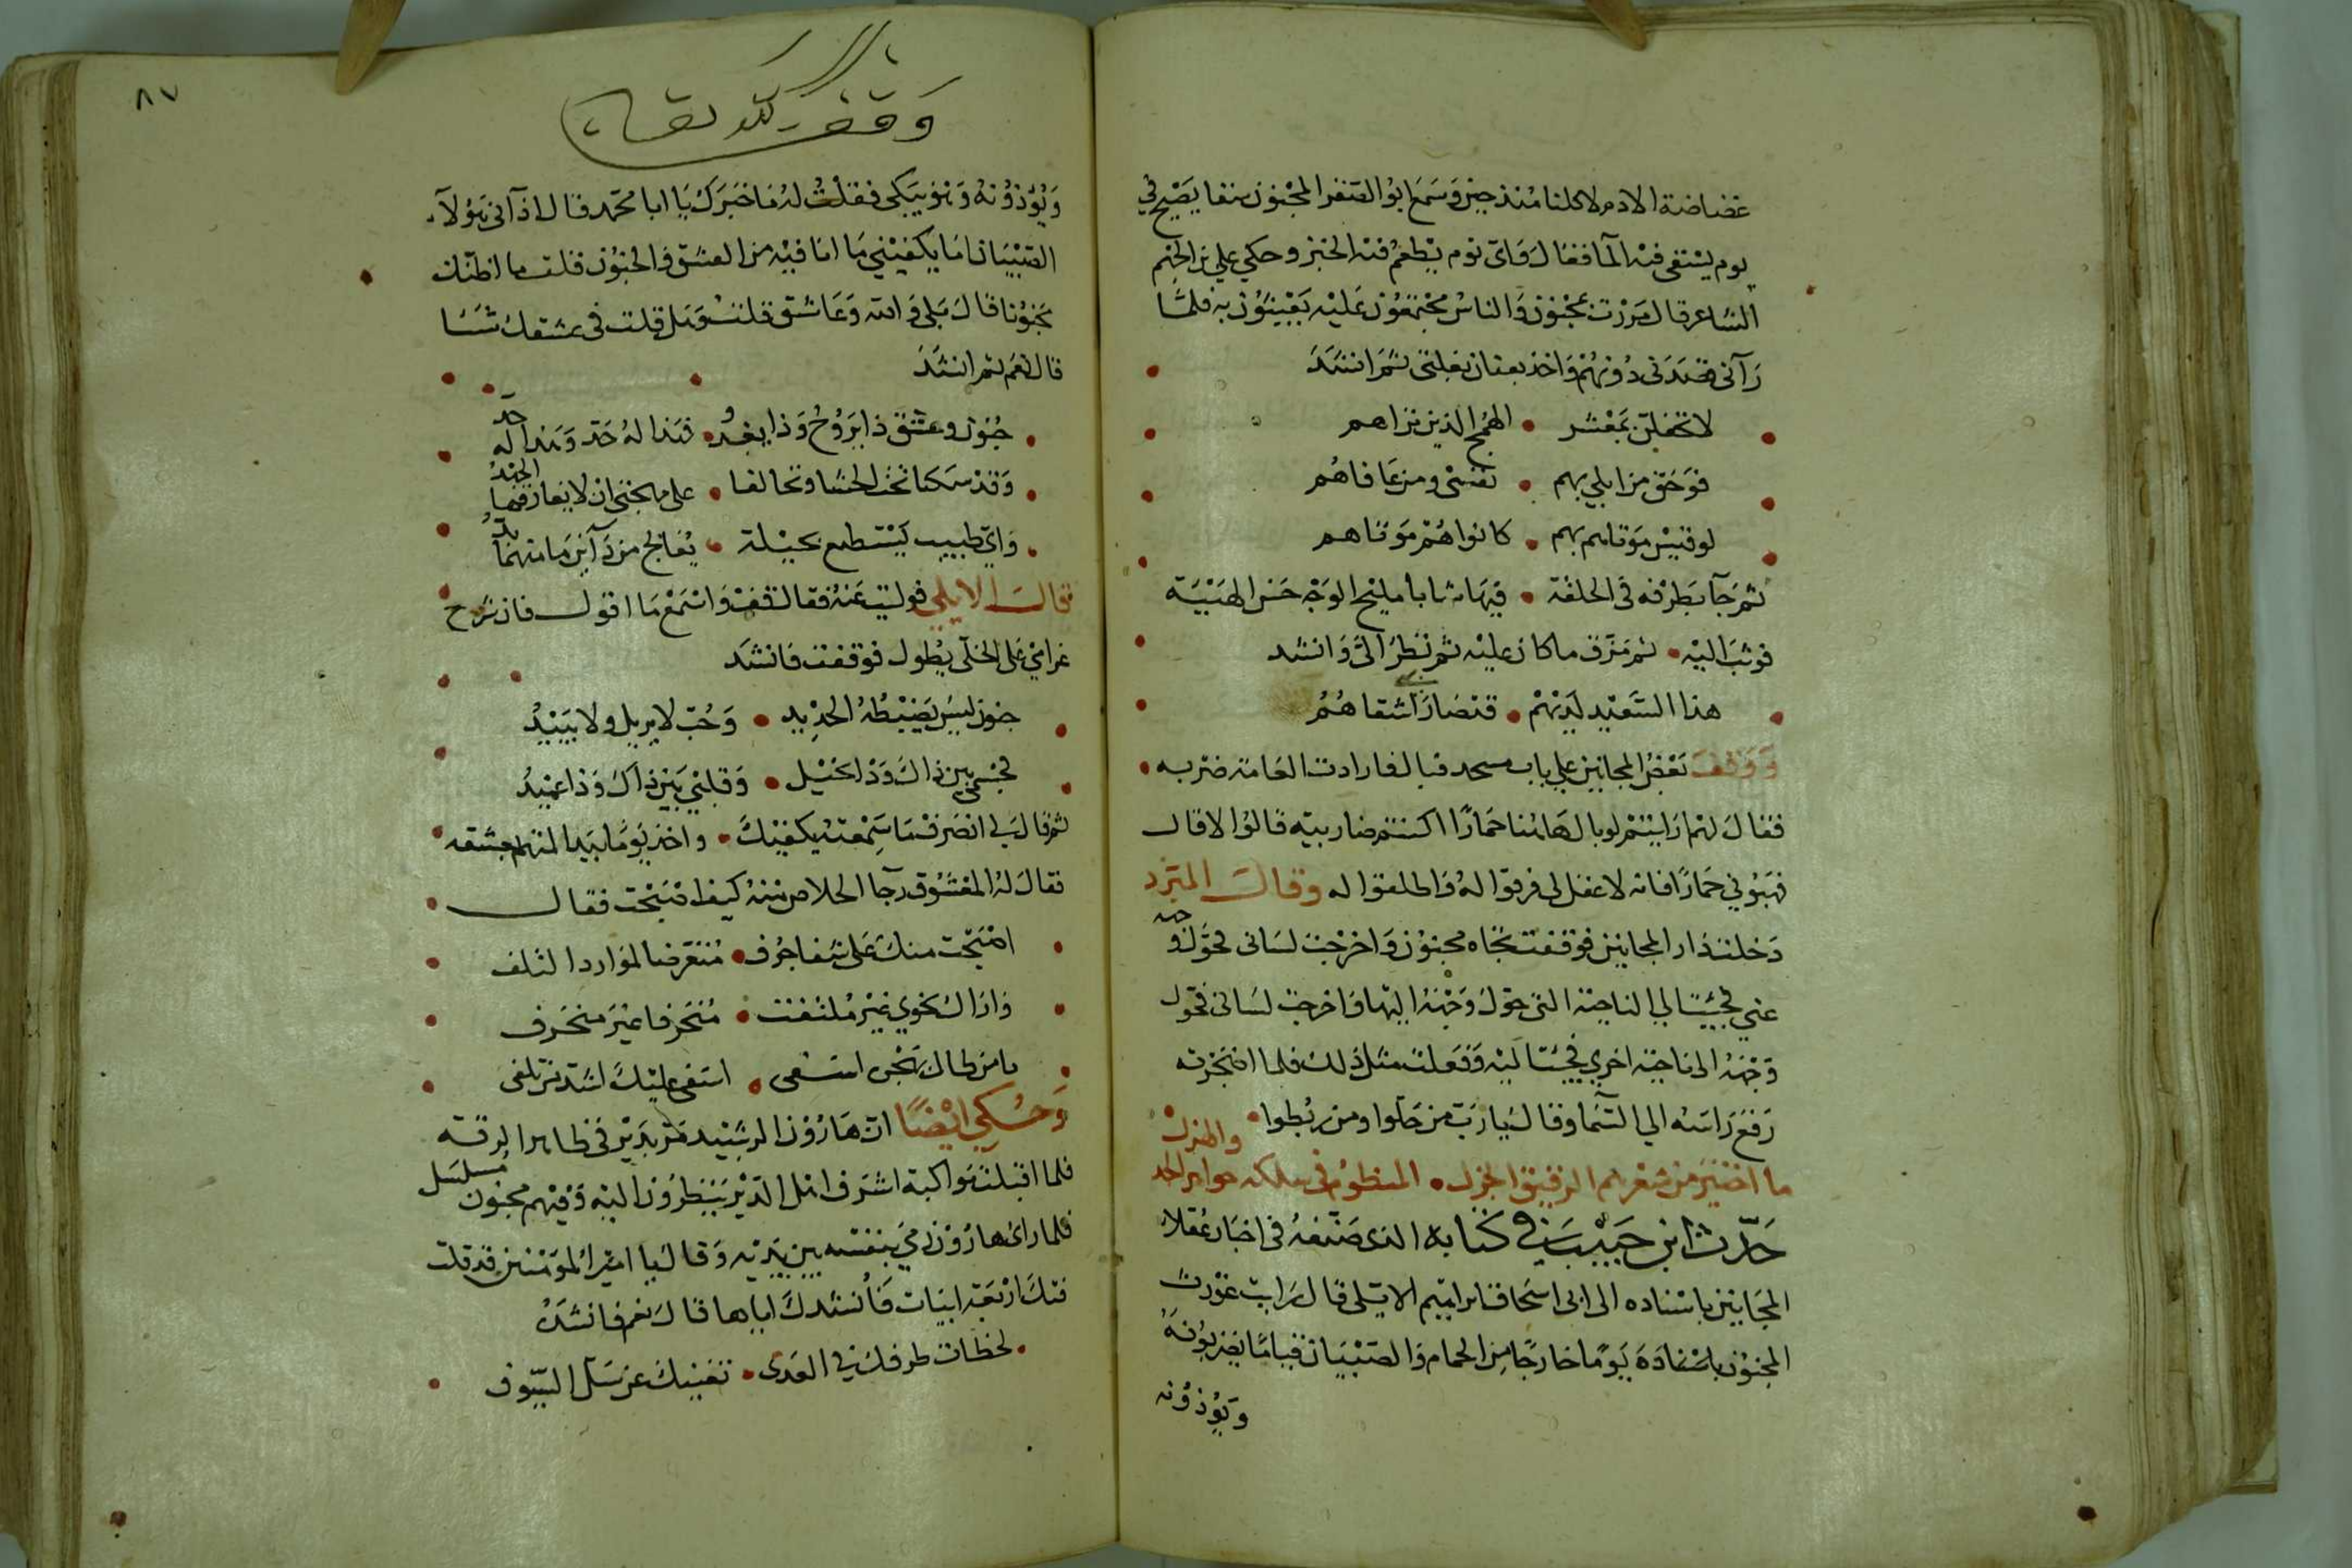 غضاضة الادم لاكلنا منذ حين وسمع ابو الصقر المجنون سقا يصيح في
يوم يستقى فيه الما فقال واى يوم يطعم فيه الخبز وحكي علي بن الجهم
الشاعر قال مررت بمجنون والناس مجتمعون عليه يعبثون به فلما
رآنى قصدنى دونهم واخذ بعنان بغلتى ثم انشد
لا تحفلن بمعشر • الهمج الذين تراهم
فوحق من ابلي بهم • نفسى ومن عافاهم
لو قيس موتاهم بهم • كانوا هم موتاهم
ثم جآ بطرفه فى الحلقة • فيها شابا مليح الوجه حسن الهيئة
فوثب اليه • ثم مزق ما كان عليه ثم نظر الىّ وانشد
هذا السعيد لديهم • قد صار بى اشقاهم
ووقف بعض المجانين علي باب مسجد فبال فارادت العامة ضربه •
فقال لهم ارايتم لو بال هاهنا حمارا اكنتم ضاربيه قالوا لا قال
فهبوني حمارا فانه لا عقل لى فرقوا له واطلقوا له وقال المبرد
دخلت دار المجانين فوقفت تجاه مجنون واخرجت لسانى فحول وجهه
عني فجيت الي الناحية التى حول وجهه اليها واخرجت لسانى فحول
وجهه الى ناحية اخري فجيت اليه وفعلت مثل ذلك فلما اضجرته
رفع راسه الي السما وقال يا رب من حلوا ومن ربطوا •
ما اختير من شعرهم الرقيق الجزل • المنظوم فى سلكه جواهر الجد والهزل
حدث ابن حبيب في كتابه الذى صنفه فى اخبار عقلا
المجانين باسناده الى ابى اسحاق ابراهيم الايلى قال رايت غورث
المجنون يوما خارجا من الحمام والصبيان قياما يضربونه
ويؤذونه
٨٧
وقف لله تعالى
ويؤذونه وهو يبكى فقلت له ما خبرك يا ابا محمد قال اذآنى هؤلآء
الصبيان اما يكفينى ما انا فيه من العشق والجنون قلت ما اظنك
مجنونا قال بلى والله وعاشق قلت وهل قلت فى عشقك شيئا
قال نعم ثم انشد
جنون وعشق ذا يروح وذا يغدو • فهذا له حد وهذا له حد
وقد سكنا تحت الحشا وتحالفا • على مهجتى ان لا يفارقها الجهد
واي طبيب يستطيع بحيلة • يعالج من دآئين ما منهما بد
قال الايلي فوليت عنه فقال قف واسمع ما اقول فان شرح
غرامي على الخلى يطول فوقفت فانشد
جنون ليس يضبطه الحديد • وحب لا يزيل ولا يبيد
فجسمى بين ذاك وذا نحيل • وقلبي بين ذاك وذا عميد
ثم قال لي انصرف ما سمعته يكفيك • واخذ يوما بيد المتهم بعشقه
فقال له المعشوق رجا الخلاص منه كيف اصبحت فقال
اصبحت منك على شفا جرف • متعرضا لموارد التلف
واراك نحوي غير ملتفت • منحرفا عن غير منحرف
يا من طال بهجره اسفى • اسفى عليك اشد من تلفى
وحكي ايضا ان هارون الرشيد مر بدير فى ظاهر الرقة
فلما اقبلت مواكبه اشرف اهل الدير ينظرون اليه وفيهم مجنون مسلسل
فلما راى هارون رمي بنفسه بين يديه وقال يا امير المومنين قد قلت
فيك اربعة ابيات فأنشدك اياها قال نعم فانشده
لحظات طرفك في العدى • تغنيك عن سل السيوف